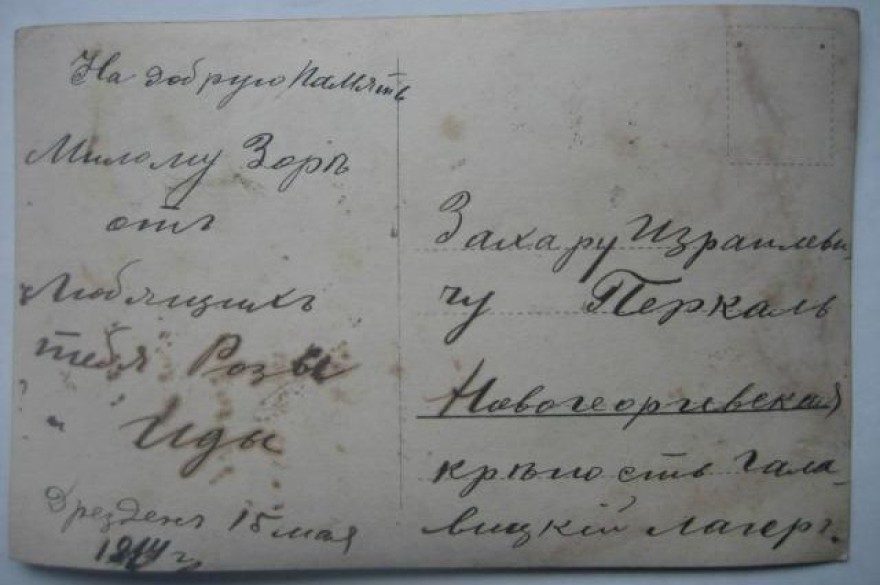 На добрую память
Милому Зорѣ
отъ
Любящихъ
тебя Розы
Иды
Дрезденъ 15 мая
1914 г.
Захару Израилеви-
чу Перкаль
Новогеоргіевская
крѣпость Гала-
вицкій лагерь.